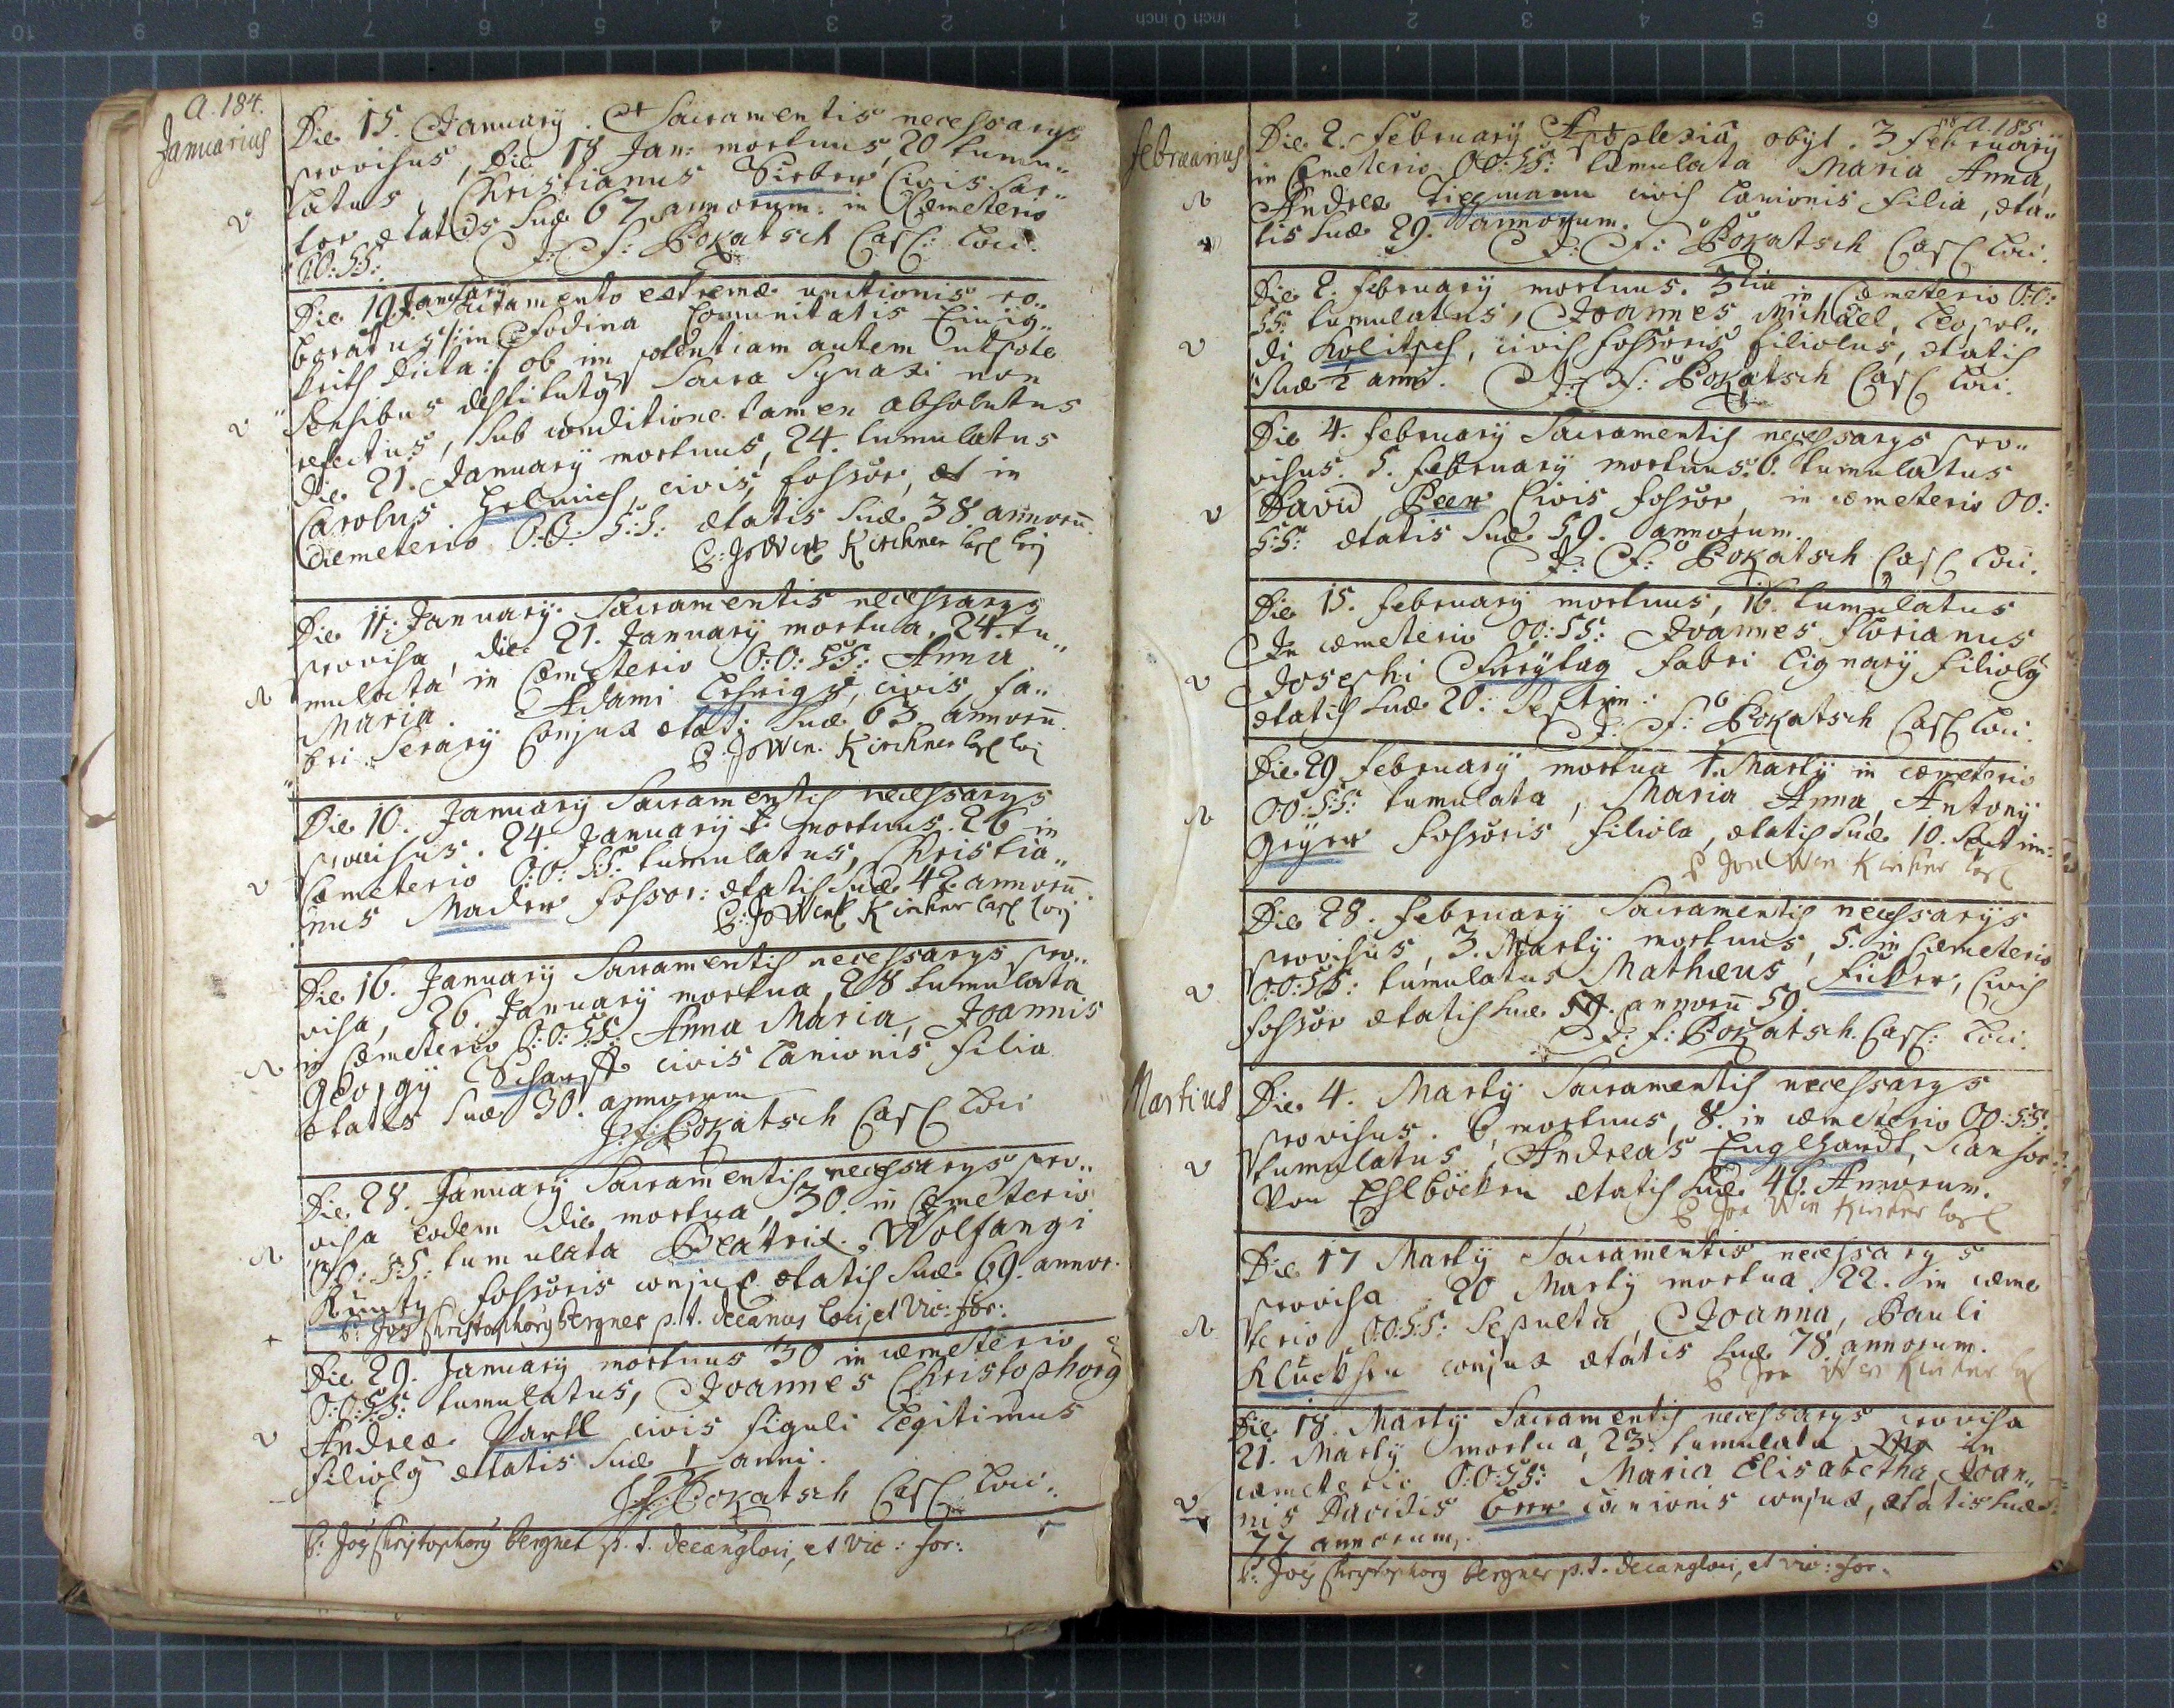 A. 184.
Januarius
Die 15. January. Sacramentis necessarys
provisus, Die 18 Jan: mortuus, 20 tumu„
latus, Christianus Sieber Civis Sar„
tor ætatis suæ 67 annorum. in Cœmeterio
OO:SS: J: F: Pokatsch Cap: Loci.
Die 19 January Sacramento extremæ unctionis ro„
boratus /: in Fodina Comunitatis
dicta :/ ob impotentiam autem utpote
sensibus destitutus Sacra Synaxi non
refectus, sub conditione tamen absolutus
die 21. January mortuus, 24. tumulatus
Carolus Helmich, civis, fossor, et in
Cœmeterio O:O: S:S: ætatis suæ 38 annoru
P: Jo Wen Kirchner Cap Loci
Die 11. January. Sacramentis necessarys
provisa, die 21. January mortua, 24. tu„
mulata in Cœmeterio O:O: SS: Anna
Maria. Adami civis, fa„
bri Serary Conjux ætat: suæ 63 annoru
P: Jo Wen. Kirchner Cap Loci
Die 10. January Sacramentis necessarys
provisus. 24. January mortuus. 26 in
Cœmeterio O:O: SS: tumulatus, Christia„
nus Mader fossor: ætatis suæ 42 annoru
P: Jo Wen Kirchner Cap Loci
Die 16. January Sacramentis necessarys pro„
visa, 26. January mortua, 28 tumulata
in Cœmeterio O:O: SS: Anna Maria, Joannis
Georgy civis Lanionis filia
ætatis suæ 30. annorum
J: F: Pokatsch Cap: Loci
Die 28. January Sacramentis necessarys pro„
visa eodem die mortua, 30. in Cœmeterio
OO: SS: tumulata Beatrix. Wolfangi
Kuntz fossoris conjux ætatis suæ 69. annor.
P: Joes Christophorus Bergner p. t. decanus loci, et Vic: for:
Die 29. January mortuus 30 in cœmeterio
O:O:SS: tumulatus, Joannes Christophorus
Andreæ Partl civis figuli legitimus
filiolus ætatis suæ 1 anni.
J: F: Pokatsch Cap: Loci.
P: Joes Christophorus Bergner p. t. decanus loci, et vic: for:
A. 185
Februarius
Die 2. February Apoplexiâ obyt. 3 February
in Cœmeterio OO:SS: tumulata Maria Anna,
Andreæ civis Lanionis filia, æta„
tis suæ 29. annorum.
J: F: Pokatsch Cap: Loci.
Die 2. February mortuus. 3tia in Cœmeterio O:O:
SS: tumulatus, Joannes Michäel, Leopol„
di Kolitsch, civis fossoris filiolus, ætatis
suæ ½ anni. J: F: Pokatsch Cap: Loci.
Die 4. February Sacramentis necessarys pro„
visus. 5. February mortuus. 6. tumulatus
David Beer Civis fossor, in cœmeterio OO:
S:S: ætatis suæ 59. annorum.
J: F: Pokatsch Cap: Loci.
Die 15. February mortuus, 16. tumulatus
In cœmeterio OO:SS: Joannes Florianus
Josephi Freytag fabri lignary filiolus
ætatis suæ 20: Septim:
J: F: Pokatsch Cap: Loci.
Die 29 February mortua 1. Marty in cœmeterio
OO:SS: tumulata, Maria Anna, Antony
Geyer fossoris filiola, ætatis suæ 10. Septim:
P Joa Wen Kirchner Cap
Die 28. February Sacramentis necessarys
provisus, 3. Marty mortuus, 5. in Cœmeterio
O:O:SS: tumulatus Mathæus Ficker, Civis
fossor ætatis suæ annoru 59.
J: F: Pokatsch. Cap: Loci.
Martius
Die 4. Marty Sacramentis necessarys
provisus. 6 mortuus, 8. in cœmeterio OO:SS:
tumulatus, Andreas Englhardt,
Von ætatis suæ 46. Annorum.
P Joa Wen Kirchner Cap
Die 17 Marty Sacramentis necessarys
provisa 20 Marty mortua 22. in cœme
terio O:O:SS: sepulta, Joanna, Pauli
conjux ætatis suæ 78 annorum.
P Joa Wen Kirchner Cap
Die 18. Marty Sacramentis necessarys provisa
21. Marty mortua, 23. tumulata in
cœmeterio O:O:SS: Maria Elisabetha, Joan„
nis Davidis Beer Lanionis conjux, ætatis suæ
77 annorum.
P: Joes Christophorus Bergner p. t. decanus loci, et vic: for.